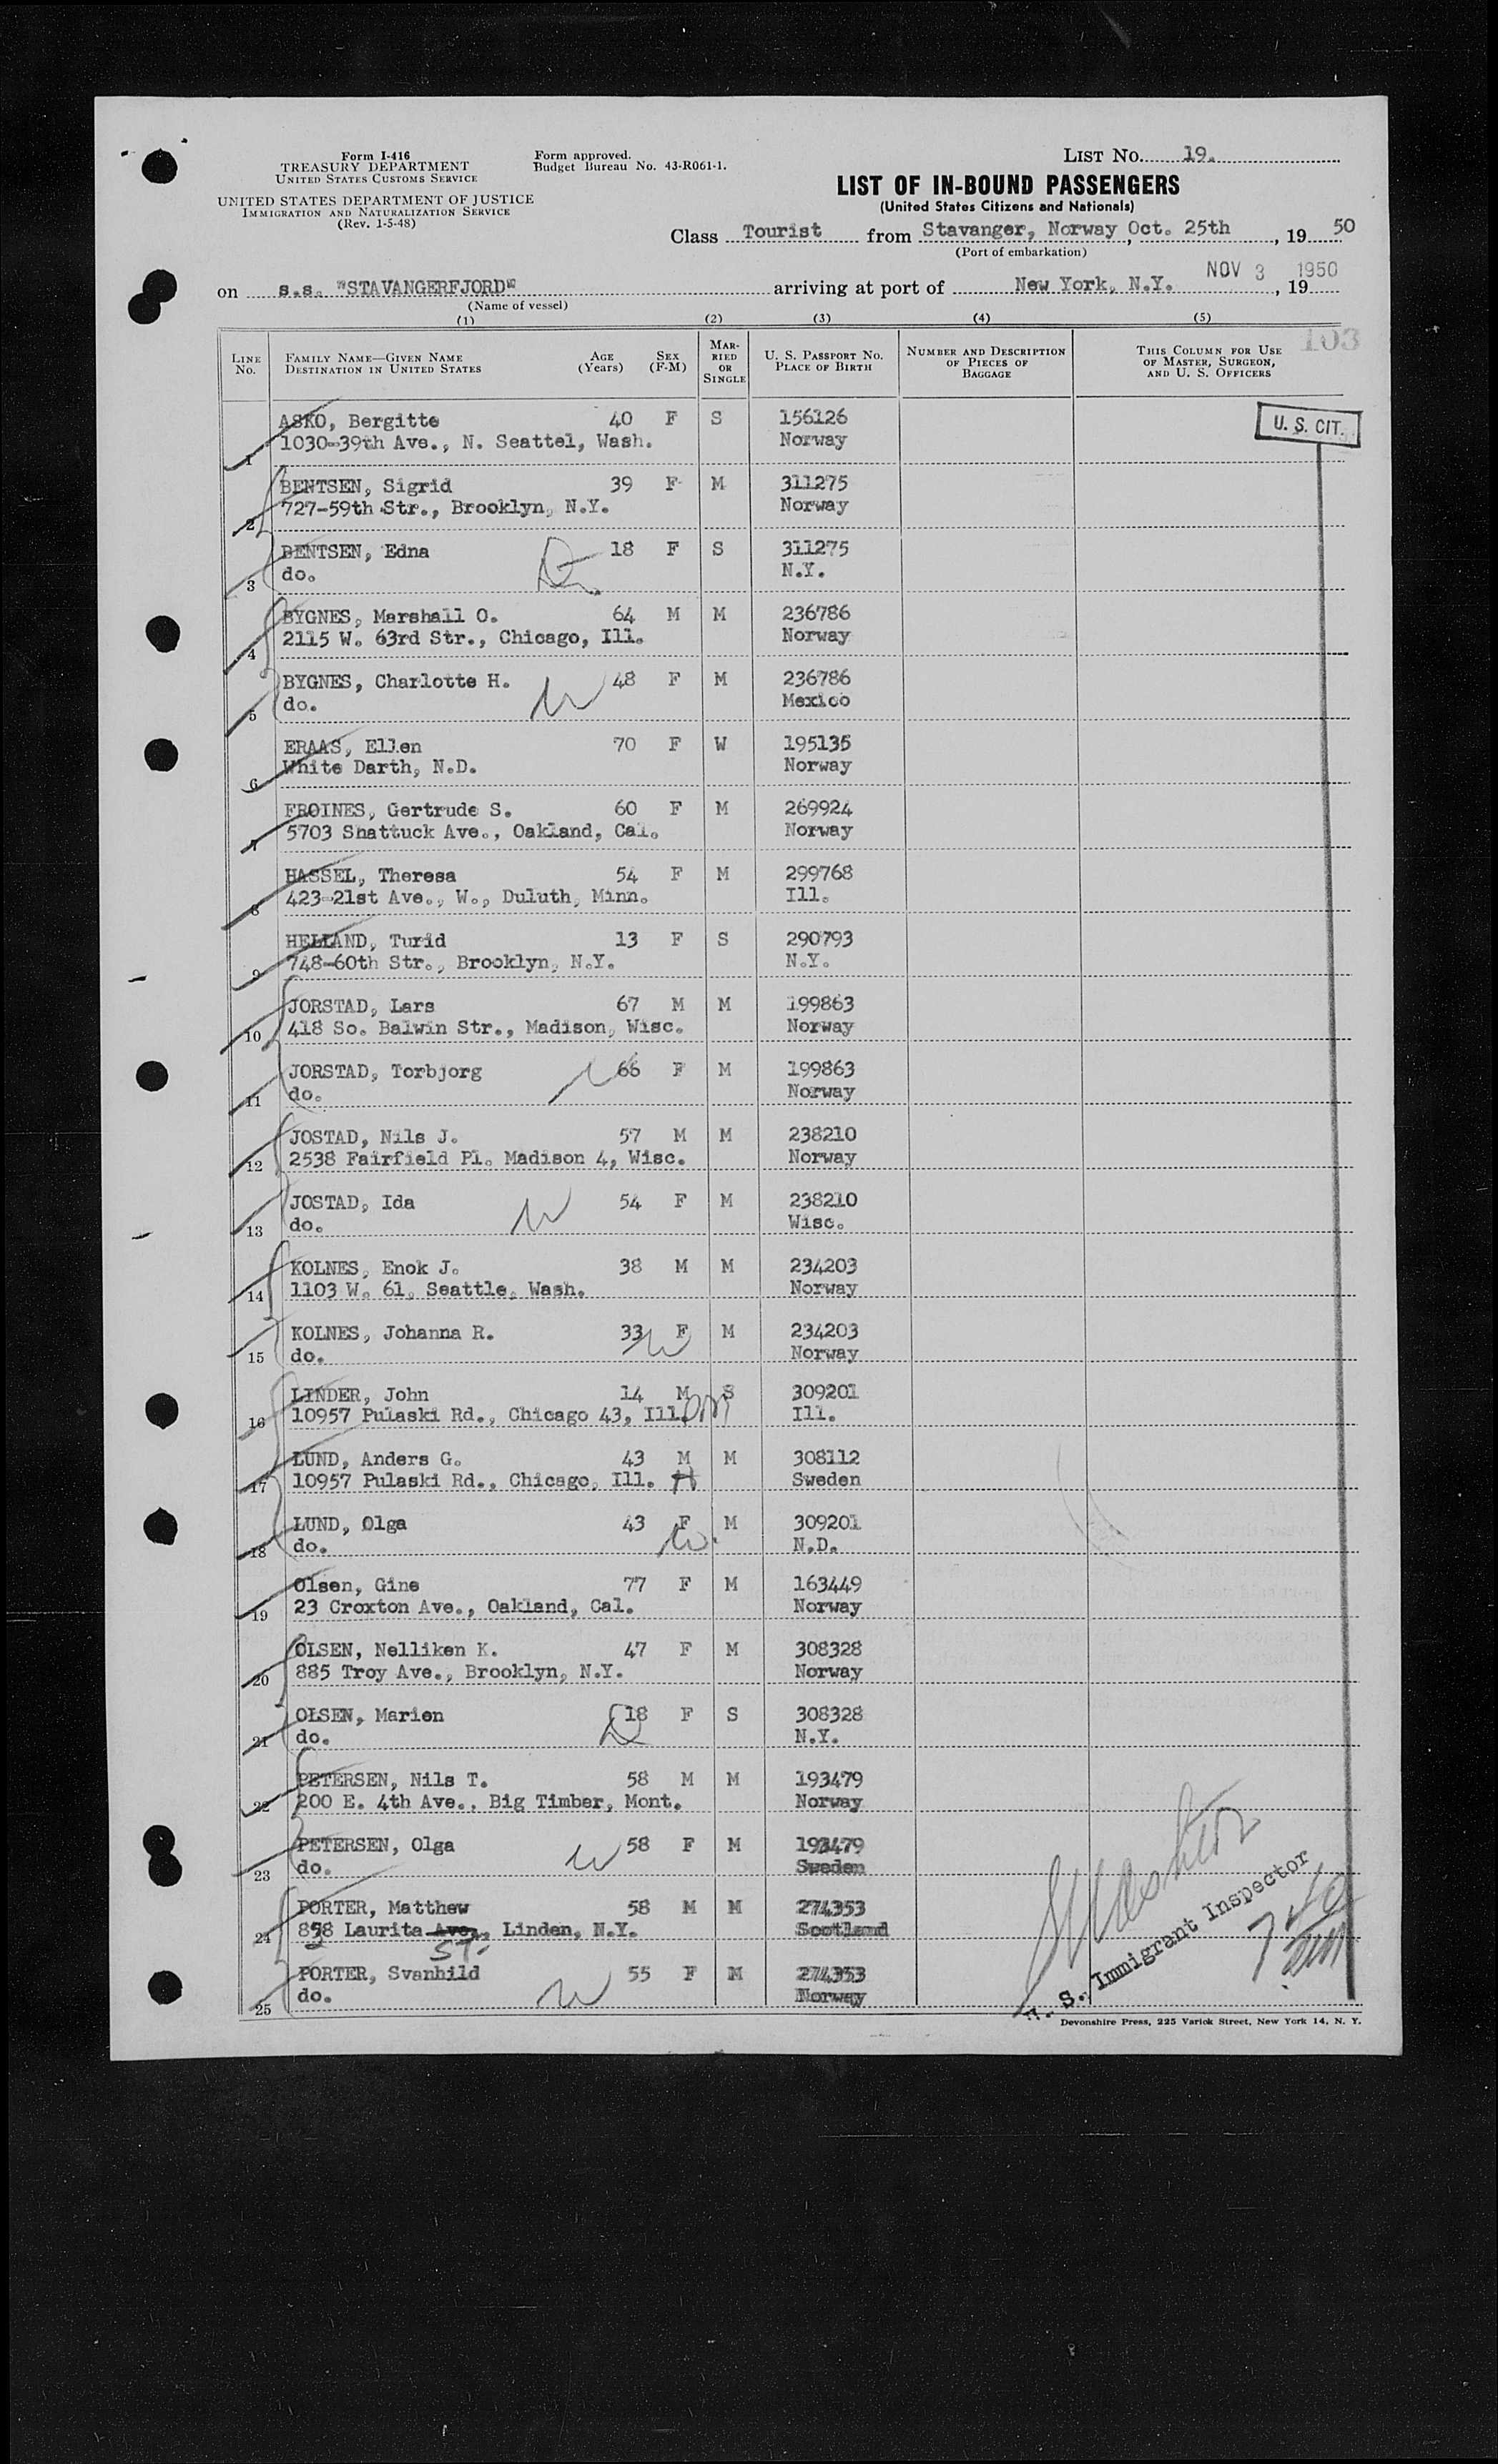 Form I-416
TREASURY DEPARTMENT
UNITED STATES CUSTOMS SERVICE
UNITED STATES DEPARTMENT OF JUSTICE
IMMIGRATION AND NATURALIZATION SERVICE
(Rev. 1-5-48)
Form approved.
Budget Bureau No. 43-R061-1.
LIST No. 19.
LIST OF IN-BOUND PASSENGERS
(United States Citizens and Nationals)
Class Tourist from Stavanger, Norway, Oct. 25th, 19 50
(Port of embarkation)
on s.s. "STAVANGERFJORD" arriving at port of New York, N.Y. NOV 3 1950, 19
(Name of vessel)
(1) (2) (3) (4) (5)
103
LINE No. FAMILY NAME—GIVEN NAME DESTINATION IN UNITED STATES AGE (Years) SEX (F-M) MARRIED OR SINGLE U. S. PASSPORT No. PLACE OF BIRTH NUMBER AND DESCRIPTION OF PIECES OF BAGGAGE THIS COLUMN FOR USE OF MASTER, SURGEON, AND U. S. OFFICERS
U. S. CIT.
ASKO, Bergitte 40 F S 156126
1 1030-39th Ave., N. Seattel, Wash. Norway
BENTSEN, Sigrid 39 F M 311275
2 727-59th Str., Brooklyn, N.Y. Norway
BENTSEN, Edna 18 F S 311275
3 do. N.Y.
BYGNES, Marshall O. 64 M M 236786
4 2115 W. 63rd Str., Chicago, Ill. Norway
BYGNES, Charlotte H. 48 F M 236786
5 do. Mexico
ERAAS, Ellen 70 F W 195135
6 White Darth, N.D. Norway
FROINES, Gertrude S. 60 F M 269924
7 5703 Shattuck Ave., Oakland, Cal. Norway
HASSEL, Theresa 54 F M 299768
8 423-21st Ave., W., Duluth, Minn. Ill.
HELLAND, Turid 13 F S 290793
9 748-60th Str., Brooklyn, N.Y. N.Y.
JORSTAD, Lars 67 M M 199863
10 418 So. Balwin Str., Madison, Wisc. Norway
JORSTAD, Torbjorg 66 F M 199863
11 do. Norway
JOSTAD, Nils J. 57 M M 238210
12 2538 Fairfield Pl. Madison 4, Wisc. Norway
JOSTAD, Ida 54 F M 238210
13 do. Wisc.
KOLNES, Enok J. 38 M M 234203
14 1103 W. 61, Seattle, Wash. Norway
KOLNES, Johanna R. 33 F M 234203
15 do. Norway
LINDER, John 14 M S 309201
16 10957 Pulaski Rd., Chicago 43, Ill. Ill.
LUND, Anders G. 43 M M 308112
17 10957 Pulaski Rd., Chicago, Ill. H Sweden
LUND, Olga 43 F M 309201
18 do. W. N.D.
Olsen, Gine 77 F M 163449
19 23 Croxton Ave., Oakland, Cal. Norway
OLSEN, Nelliken K. 47 F M 308328
20 885 Troy Ave., Brooklyn, N.Y. Norway
OLSEN, Marien 18 F S 308328
21 do. D N.Y.
PETERSEN, Nils T. 58 M M 193479
22 200 E. 4th Ave., Big Timber, Mont. Norway
PETERSEN, Olga 58 F M 193479
23 do. W Sweden
PORTER, Matthew 58 M M 274353
24 Laurita Ave., Linden, N.Y. Scotland
ST.
PORTER, Svanhild 55 F M 274353
25 do. W Norway
U. S. Immigrant Inspector
Devonshire Press, 225 Varick Street, New York 14, N. Y.